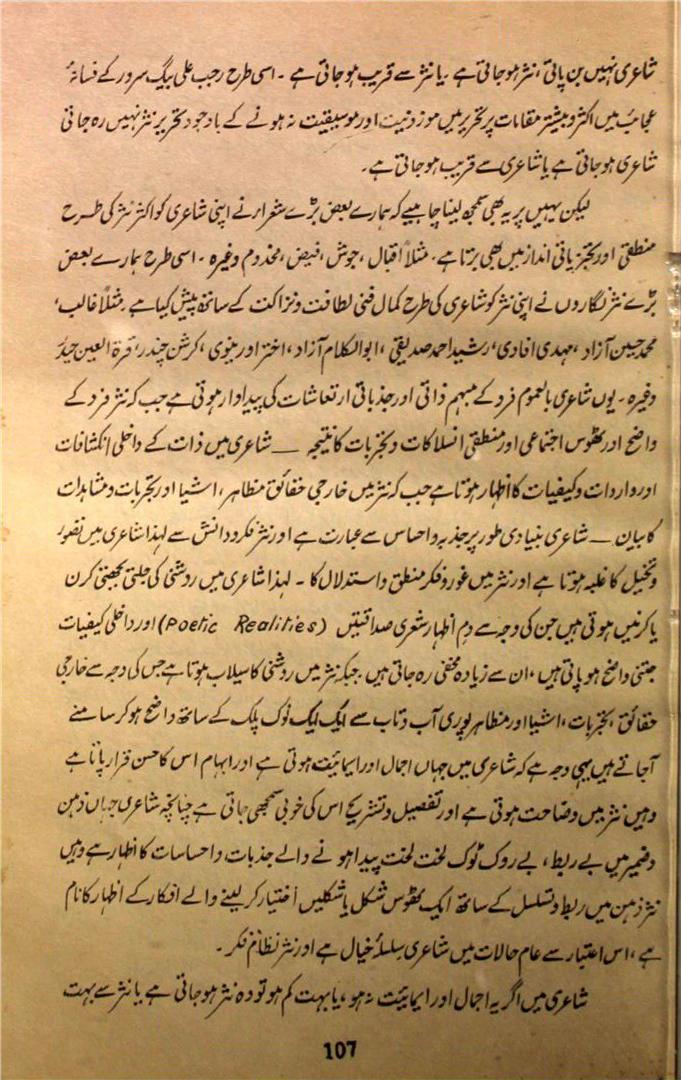 شاعری نہیں بن پاتی، نثر ہو جاتی ہے۔ یا نثر سے قریب ہو جاتی ہے۔ اسی طرح رجب علی بیگ سرور کے فسانۂ
عجائب میں اکثر و بیشتر مقامات پر تحریر میں موزونیت اور موسیقیت نہ ہونے کے باوجود تحریر نثر نہیں رہ جاتی
شاعری ہو جاتی ہے یا شاعری سے قریب ہو جاتی ہے۔
لیکن یہیں پر یہ بھی سمجھ لینا چاہیے کہ ہمارے بعض بڑے شعراء نے اپنی شاعری کو اکثر نثر کی طرح
منطقی اور تجزیاتی انداز میں بھی برتا ہے۔ مثلاً اقبال، جوش، فیض، مخدوم وغیرہ۔ اسی طرح ہمارے بعض
بڑے نثر نگاروں نے اپنی نثر کو شاعری کی طرح کمال فنی لطافت و نزاکت کے ساتھ پیش کیا ہے۔ مثلاً غالب،
محمد حسین آزاد، مہدی افادی، رشید احمد صدیقی، ابوالکلام آزاد، اختر اورینوی، کرشن چندر، قرۃ العین حیدر
وغیرہ۔ یوں شاعری بالعموم فرد کے مبہم ذاتی اور جذباتی ارتعاشات کی پیداوار ہوتی ہے جب کہ نثر فرد کے
واضح اور ٹھوس اجتماعی اور منطقی انسلاکات و تجربات کا نتیجہ — شاعری میں ذات کے داخلی انکشافات
اور واردات و کیفیات کا اظہار ہوتا ہے جب کہ نثر میں خارجی حقائق مظاہر، اشیا اور تجربات و مشاہدات
کا بیان — شاعری بنیادی طور پر جذبہ و احساس سے عبارت ہے اور نثر فکر و دانش سے لہذا شاعری میں تصور
و تخیل کا غلبہ ہوتا ہے اور نثر میں غور و فکر منطق و استدلال کا۔ لہذا شاعری میں روشنی کی جلتی بجھتی کرن
یا کرنیں ہوتی ہیں جن کی وجہ سے دم اظہار شعری صداقتیں (Poetic Realities) اور داخلی کیفیات
جتنی واضح ہو پاتی ہیں، ان سے زیادہ مخفی رہ جاتی ہیں۔ جبکہ نثر میں روشنی کا سیلاب ہوتا ہے جس کی وجہ سے خارجی
حقائق، تجربات، اشیا اور مظاہر پوری آب و تاب سے ایک ایک نوک پلک کے ساتھ واضح ہو کر سامنے
آجاتے ہیں یہی وجہ ہے کہ شاعری میں جہاں اجمال اور ایمائیت ہوتی ہے اور ابہام اس کا حسن قرار پاتا ہے
وہیں نثر میں وضاحت ہوتی ہے اور تفصیل و تشریح اس کی خوبی سمجھی جاتی ہے چنانچہ شاعری جہاں ذہن
و ضمیر میں بے ربط، بے روک ٹوک لخت لخت پیدا ہونے والے جذبات و احساسات کا اظہار ہے وہیں
نثر ذہن میں ربط و تسلسل کے ساتھ ایک ٹھوس شکل یا شکلیں اختیار کر لینے والے افکار کے اظہار کا نام
ہے، اس اعتبار سے عام حالات میں شاعری سلسلۂ خیال ہے اور نثر نظام فکر۔
شاعری میں اگر یہ اجمال اور ایمائیت نہ ہو، یا بہت کم ہو تو وہ نثر ہو جاتی ہے یا نثر سے بہت
107